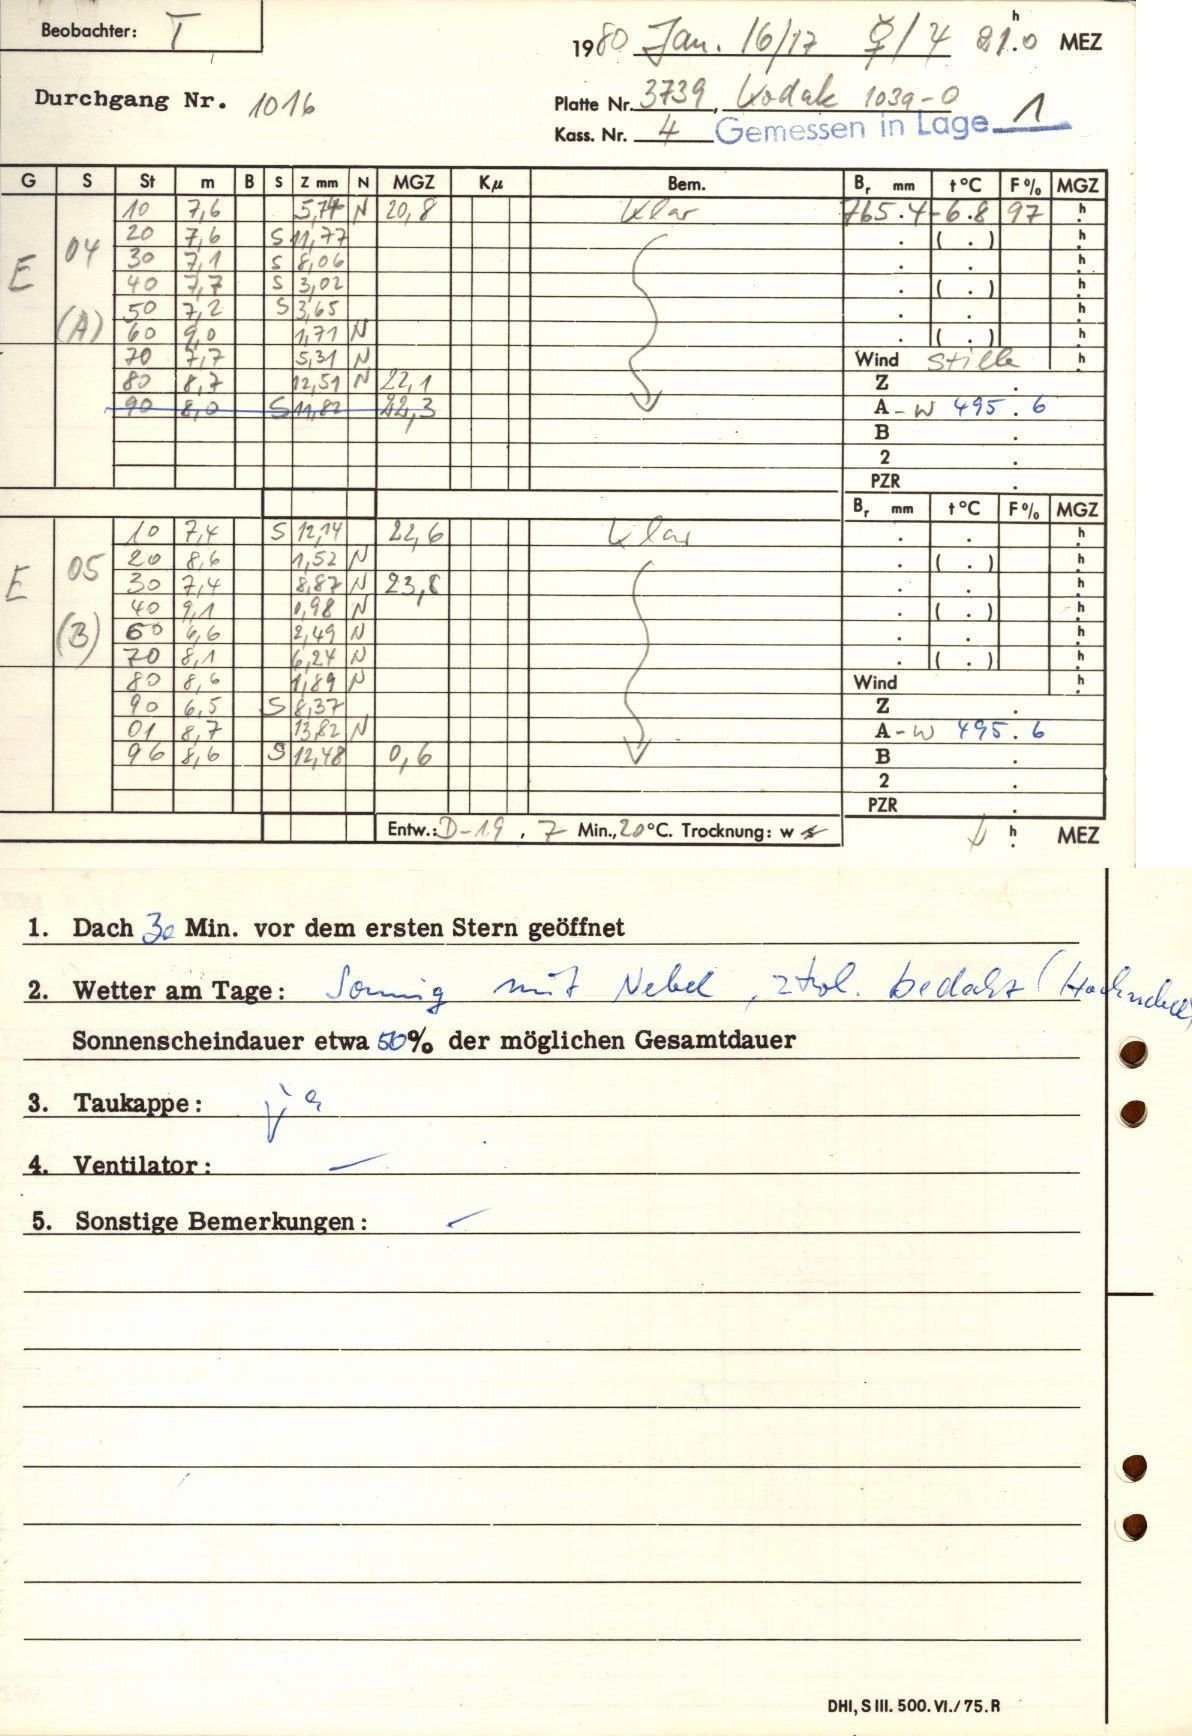 Beobachter: T
1980 Jan. 16/17 ☿/♃ 21.0 h MEZ
Durchgang Nr. 1016
Platte Nr. 3739, Kodak 103a-O
Kass. Nr. 4 Gemessen in Lage 1
G S St m B S Z mm N MGZ Kµ Bem. Br mm t°C F% MGZ
10 7,6 5,74 N 20,8 klar 765.4 -6.8 97 h
E 04 20 7,6 S 11,77 . ( . ) h
30 7,1 S 8,06 . . h
40 7,7 S 3,02 . ( . ) h
50 7,2 S 3,65 . . h
(A) 60 9,0 1,71 N . ( . )
70 7,7 5,31 N Wind Stille h
80 8,7 12,51 N 22,1 Z .
90 8,0 S 11,82 22,3 A-W 495.6
B .
2 .
PZR .
Br mm t°C F% MGZ
10 7,4 S 12,14 22,6 klar . . h
E 05 20 8,6 1,52 N . ( . ) h
30 7,4 8,87 N 23,8 . . h
40 9,1 0,98 N . ( . ) h
(B) 60 6,6 2,49 N . . h
70 8,1 6,24 N . ( . ) h
80 8,6 1,89 N Wind h
90 6,5 S 8,37 Z .
01 8,7 13,82 N A-W 495.6
96 8,6 S 12,48 0,6 B .
2 .
PZR .
Entw.: D-19, 7 Min., 20°C. Trocknung: w s h MEZ
1. Dach 30 Min. vor dem ersten Stern geöffnet
2. Wetter am Tage: Sonnig mit Nebel, ztw. bedeckt (Hochnebel)
Sonnenscheindauer etwa 50% der möglichen Gesamtdauer
3. Taukappe: ja
4. Ventilator: –
5. Sonstige Bemerkungen: –
DHI, S III. 500. VI./75. R